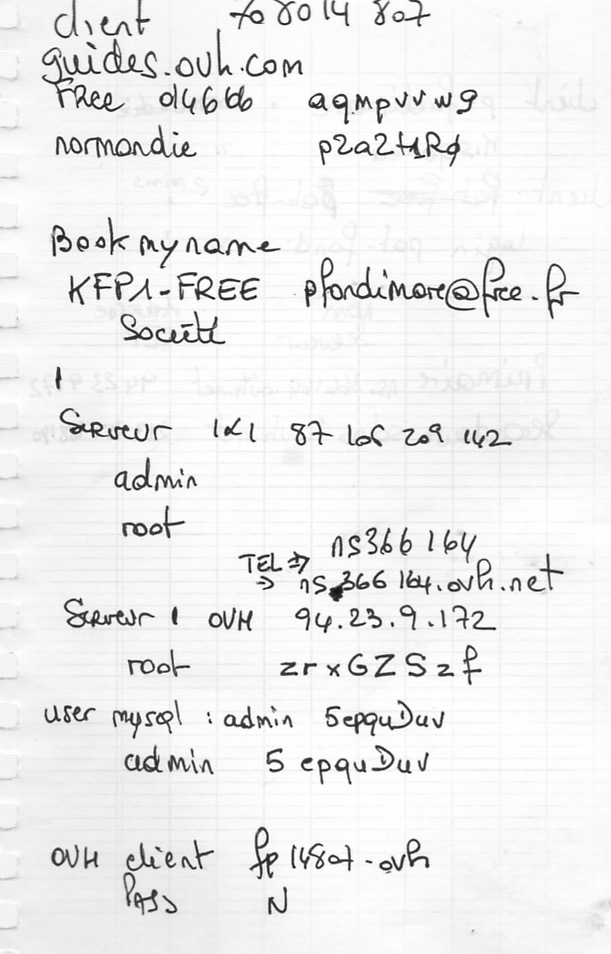 client
guides.ovh.com
Free aqmpvvw9
normandie
Bookmyname
KFP1-FREE pfondimare@free.fr
Société
Serveur 1&1 87 106 209 142
admin
root
TEL => ns366 164
=> ns 366 164.ovh.net
Serveur 1 OVH 94.23.9.172
root zrxGZSzf
user mysql : admin 5epquDuv
admin 5 epquDuv
OVH client fp14807-ovh
PASS N